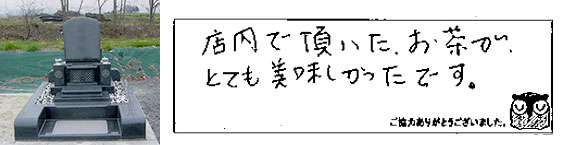 店内で頂いた、お茶が、
とても美味しかったです。
ご協力ありがとうございました。